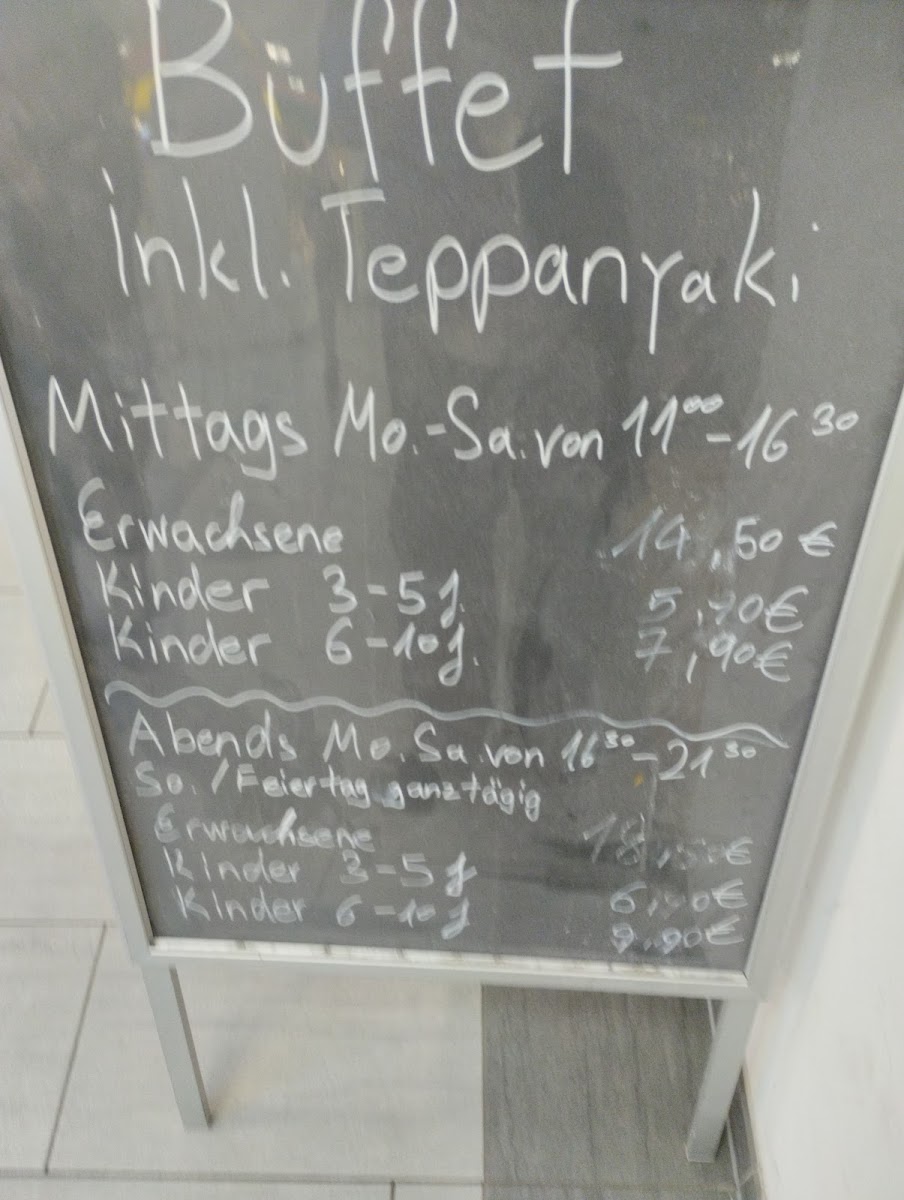 Buffet
inkl. Teppanyaki
Mittags Mo.-Sa. von 11⁰⁰-16³⁰
Erwachsene 14,50 €
Kinder 3-5 J. 5,90€
Kinder 6-10 J. 7,90€
Abends Mo. Sa. von 16³⁰-21³⁰
So./Feiertag ganztägig
Erwachsene 18,50€
Kinder 3-5 J 6,90€
Kinder 6-10 J 9,90€